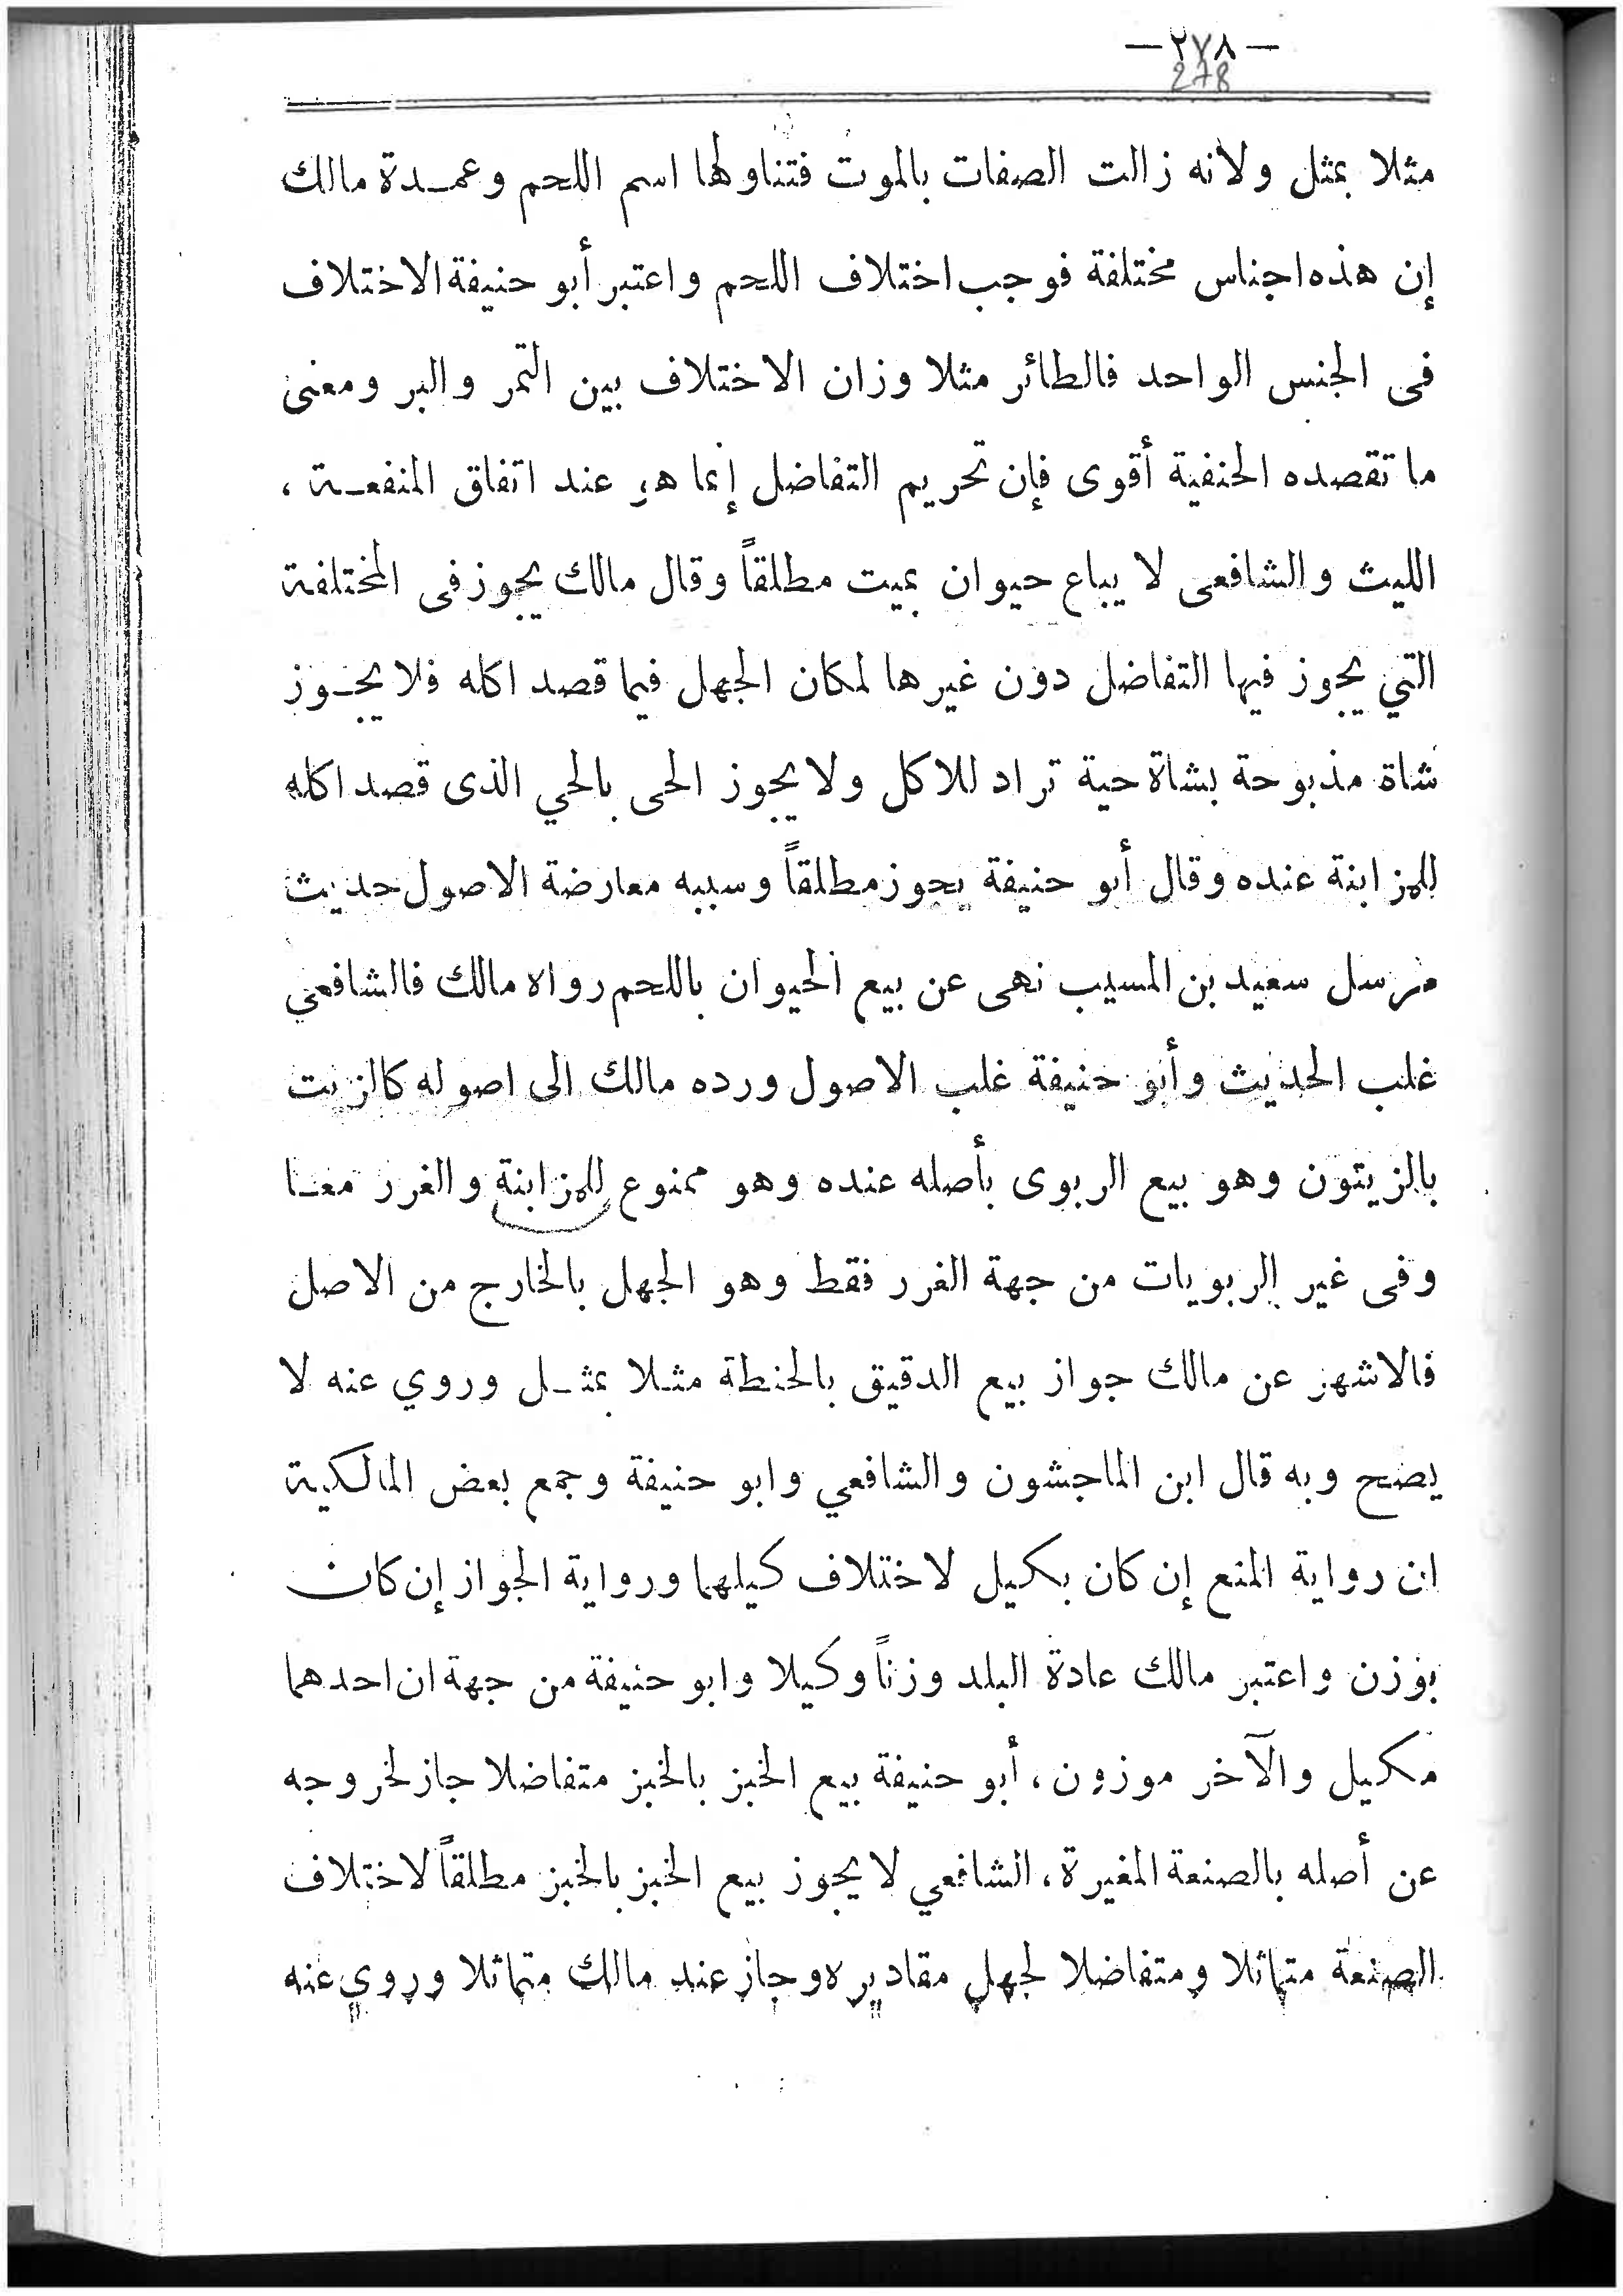 —٢٧٨—
278
مثلا بمثل ولانه زالت الصفات بالموت فتناولها اسم اللحم وعمـدة مالك
إن هذه اجناس مختلفة فوجب اختلاف اللحم واعتبر أبو حنيفة الاختلاف
فى الجنس الواحد فالطائر مثلا وزان الاختلاف بين التمر والبر ومعنى
ما تقصده الحنفية أقوى فإن تحريم التفاضل إنما هو عند اتفاق المنفعـة ،
الليث والشافعى لا يباع حيوان بميت مطلقاً وقال مالك يجوز فى المختلفة
التي يجوز فيها التفاضل دون غيرها لمكان الجهل فيما قصد اكله فلا يجـوز
شاة مذبوحة بشاة حية تراد للاكل ولا يجوز الحى بالحي الذى قصد اكله
للمزابنة عنده وقال أبو حنيفة يجوز مطلقاً وسببه معارضة الاصول حديث
مرسل سعيد بن المسيب نهى عن بيع الحيوان باللحم رواه مالك فالشافعي
غلب الحديث وأبو حنيفة غلب الاصول ورده مالك الى اصوله كالزيت
بالزيتون وهو بيع الربوى بأصله عنده وهو ممنوع للمزابنة والغرر معـا
وفى غير الربويات من جهة الغرر فقط وهو الجهل بالخارج من الاصل
فالاشهر عن مالك جواز بيع الدقيق بالحنطة مثـلا بمثـل وروي عنه لا
يصح وبه قال ابن الماجشون والشافعي وابو حنيفة وجمع بعض المالكية
ان رواية المنع إن كان بكيل لاختلاف كيلهما ورواية الجواز إن كان
بوزن واعتبر مالك عادة البلد وزناً وكيلا وابو حنيفة من جهة ان احدهما
مكيل والآخر موزون ، أبو حنيفة بيع الخبز بالخبز متفاضلا جاز لخروجه
عن أصله بالصنعة المغيرة ، الشافعي لا يجوز بيع الخبز بالخبز مطلقاً لاختلاف
الصنعة متماثلا ومتفاضلا لجهل مقاديره وجاز عند مالك متماثلا وروي عنه